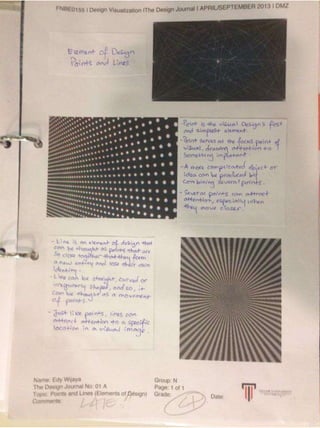 FNBE0155 | Design Visualization | The Design Journal | APRIL/SEPTEMBER 2013 | DMZ
Element of Design
Points and Lines
- Point is the visual Design's first
and simplest element.
- Point serves as the focal point of
visual, drawing attention to
something important
- A more complicated object or
idea can be produced by
combining several points.
- Several points can attract
attention, especially when
they move closer.
- Line is an element of design that
can be thought as points that are
so close together that they form
a new entity and lose their own
identity.
- Line can be straight, curved or
irregularly shaped, and so, it
can be thought as a movement
of points.
- Just like points, lines can
attract attention to a specific
location in a visual image
Name: Edy Wijaya
Group: N
The Design Journal No: 01 A
Page: 1 of 1
Topic: Points and Lines (Elements of Design)
Grade: 4
Date:
Comments: LATE!!